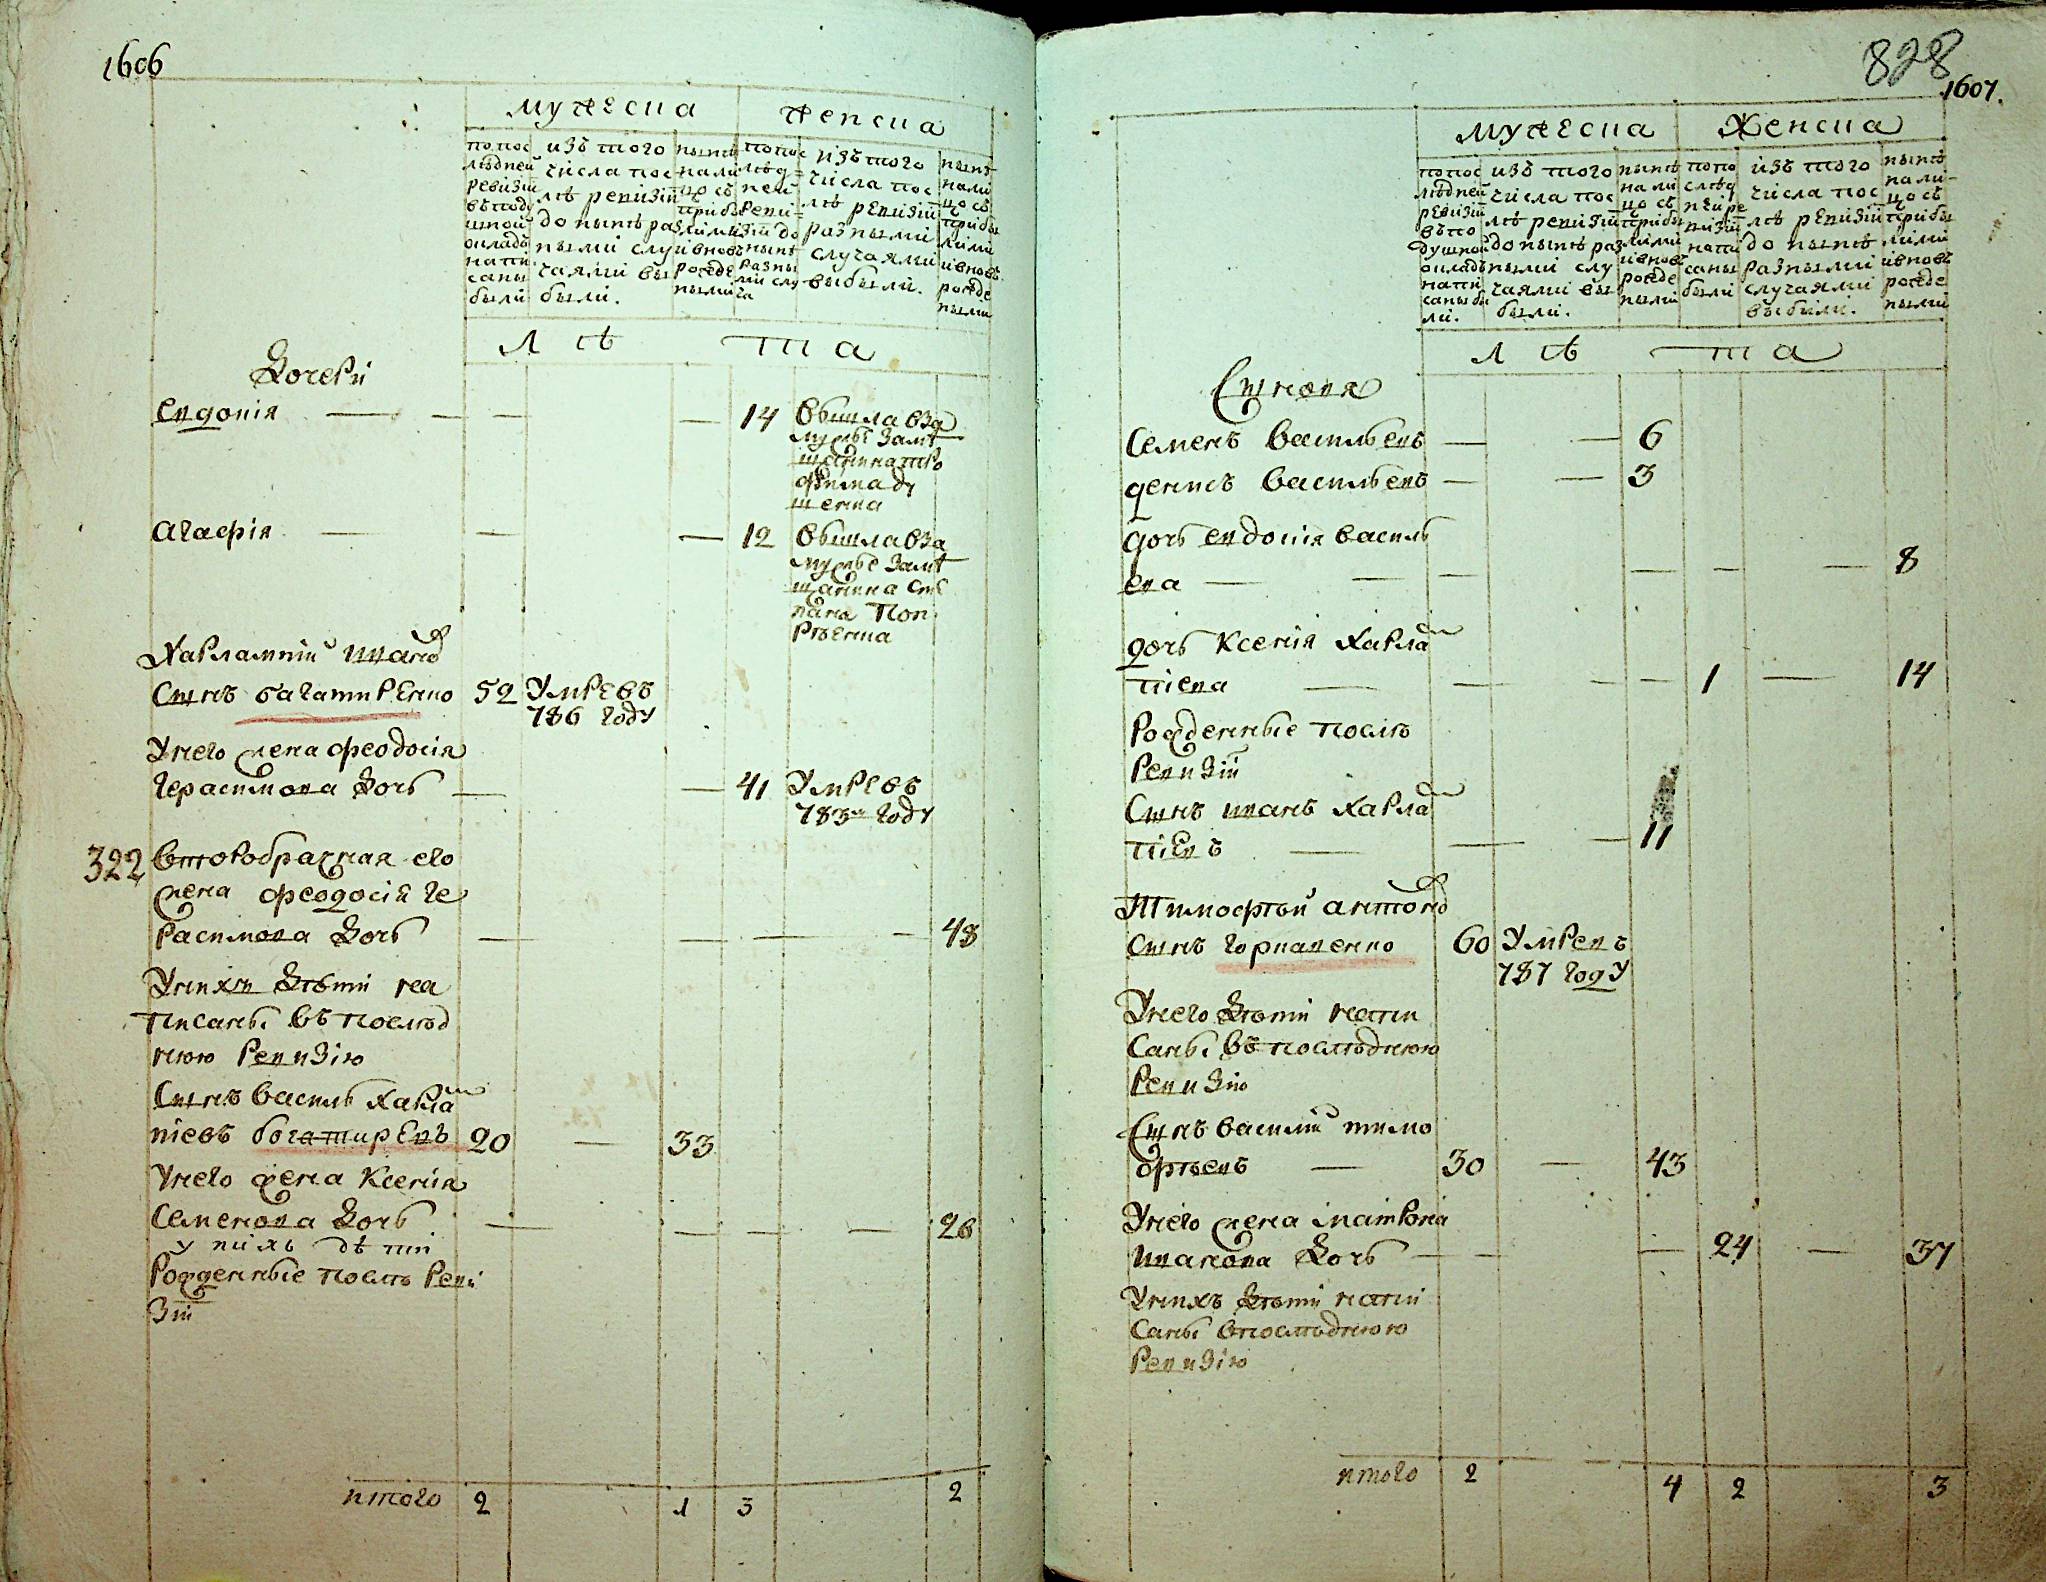 1606
мужеска
женска
по пос
лѣдней
ревизіи
въ поду
шной
окладъ
напи
саны
были
изъ того
числа пос
лѣ ревизіи
до нынѣ раз
ными слу
чаями вы
были.
нынѣ
нали
цо съ
прибы
лыми
и вновь
рожде
нными
по пос
лѣд
ней
реви
зіи до
нынѣ
разны
ми слу
ча
изъ того
числа пос
лѣ ревизіи
разными
случаями
выбыли.
нынѣ
нали
цо съ
прибы
лыми
и вновь
рожде
нными
лѣ та
Дочери
Евдокія 14 вышла вза
мужье за мѣ
щанина тро
фима ду
шенка
Агафія 12 вышла вза
мужье за мѣ
щанина сте
пана
Харлампій ивановъ
сынъ багатиренко 52 умре въ
786 году
У него жена феодосія
герасимова дочь 41 умре въ
783м году
322 второбрачная его
жена феодосія ге
расимова дочь 48
У нихъ дѣти на
писаны въ послѣд
нюю ревизію
Сынъ василь харлам
піевъ богатиревъ 20 33
У него жена Ксенія
семенова дочь 26
у нихъ дѣти
рожденные послѣ реви
зіи
итого 2 1 3 2
828
1607.
мужеска
женска
по пос
лѣдней
ревизіи
въ по
душной
окладъ
напи
саны бы
ли.
изъ того
числа пос
лѣ ревизіи
до нынѣ раз
ными слу
чаями вы
были.
нынѣ
нали
цо съ
прибы
лыми
и вновь
рожде
нными
по по
слѣд
ней ре
визіи
напи
саны
были
изъ того
числа пос
лѣ ревизіи
до нынѣ
разными
случаями
выбыли.
нынѣ
нали
цо съ
прибы
лыми
и вновь
рожде
нными
лѣ та
Сыновя
Семенъ васильевъ 6
денисъ васильевъ 3
дочь евдокія василь
ева 8
дочь Ксенія харлам
піева 1 14
Рожденные послѣ
ревизіи
Сынъ иванъ харлам
піевъ 11
Тимофѣй антоновъ
сынъ горкавенко 60 умревъ
787 году
У него дѣти напи
саны въ послѣднюю
ревизію
Сынъ василій тимо
фѣевъ 30 43
У него жена матрона
иванова дочь 24 37
У нихъ дѣти напи
саны впослѣднюю
ревизію
итого 2 4 2 3